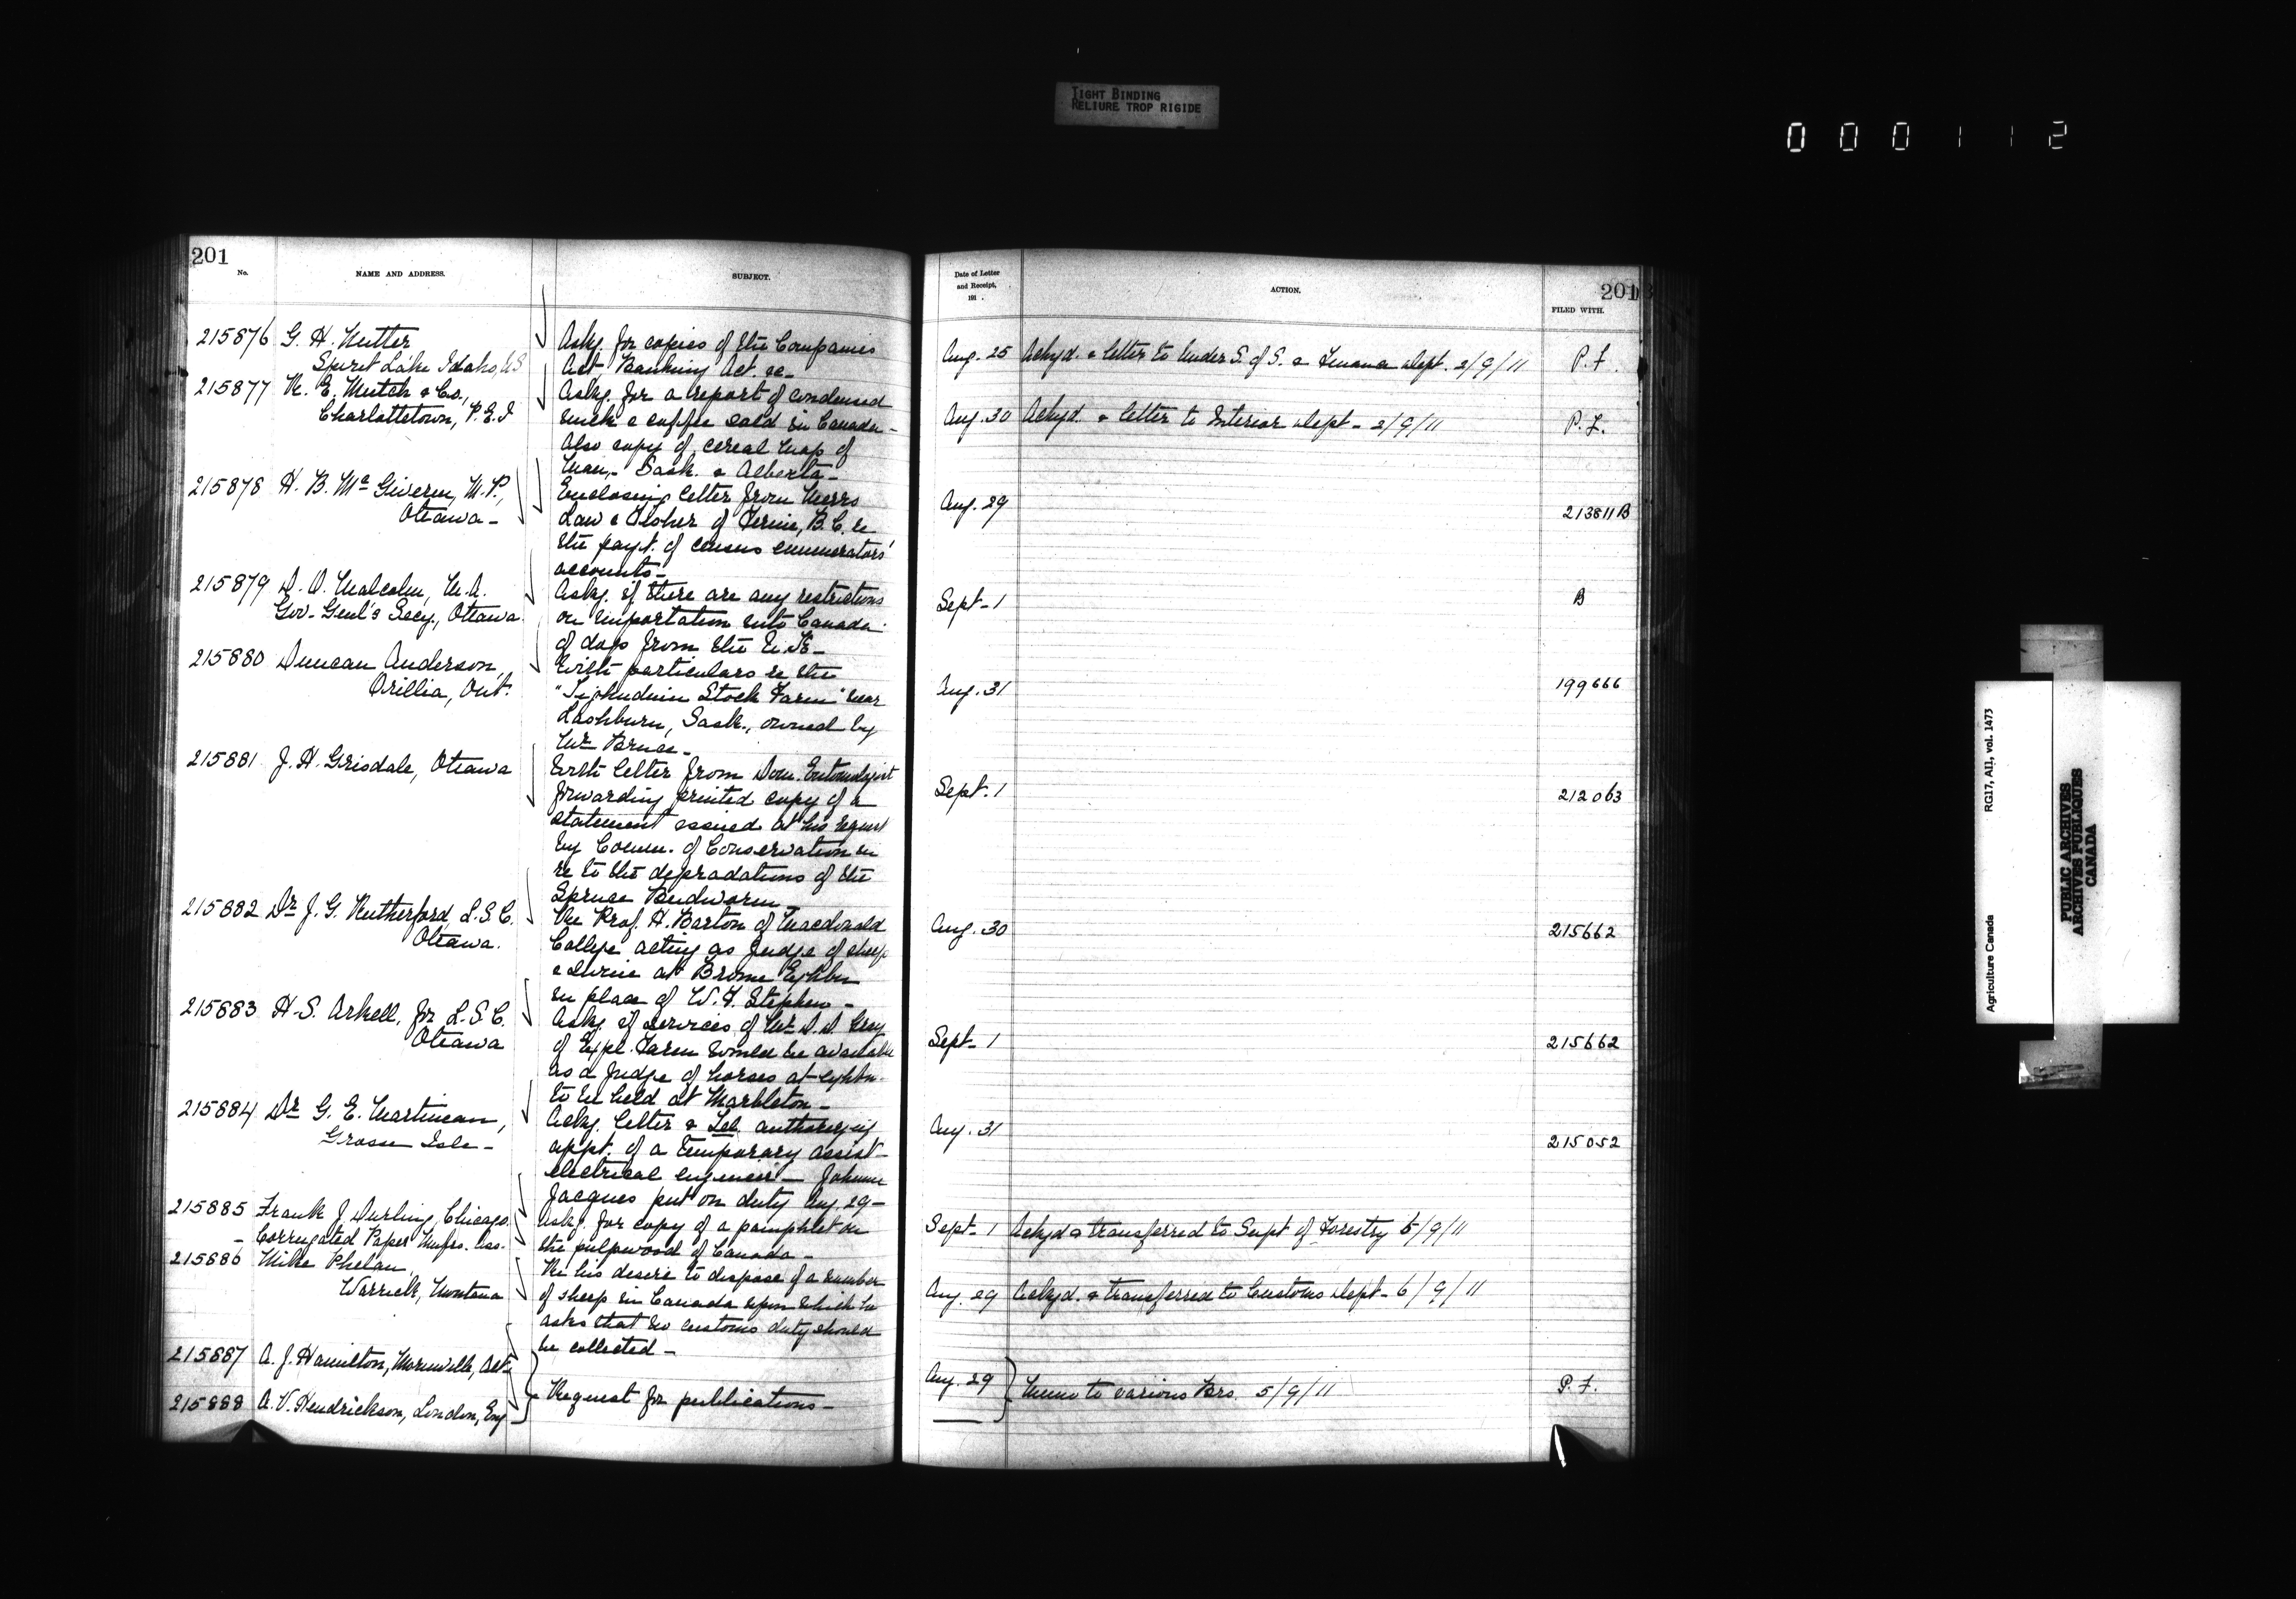 TIGHT BINDING
RELIURE TROP RIGIDE
0 0 0 1 1 2
201
No.
NAME AND ADDRESS.
SUBJECT.
215876 G. H. Nutter
Spirit Lake Idaho, US
Askg. for copies of the Companies
Act Banking Act. &c-
215877 R. E. Mutch & Co.,
Charlottetown, P.E.I
Askg. for a report of condensed
milk & coffee sold in Canada-
Also copy of cereal map of
Man,- Sask. & Alberta-
215878 H. B. McGiverin, M.P.,
Ottawa-
Enclosing letter from Messrs
Law & Fisher of Fernie, B.C. re
the payt. of census enumerators'
accounts-
215879 D. O. Malcolm, M.A.
Gov.-Genl's Secy., Ottawa
Askg. if there are any restrictions
on importation into Canada
of dogs from the U.K-
215880 Duncan Anderson,
Orillia, Ont.
With particulars re the
Stock Farm" near
Lashburn, Sask., owned by
Mr Bruce-
215881 J. H. Grisdale, Ottawa
With letter from Dom. Entomologist
forwarding printed copy of a
statement issued at his request
by Comm. of Conservation in
re to the depradations of the
Spruce Budworm-
215882 Dr J. G. Rutherford, L.S.C.
Ottawa.
Re Prof. H. Barton of Macdonald
College acting as judge of sheep
& swine at Brome Exhbn
in place of W. F. Stephen-
215883 H. S. Arkell, for L.S.C.
Ottawa
Askg. if services of Mr D. D. Gray
of Expl. Farm would be available
as a judge of horses at exhbn.
to be held at Marbleton-
215884 Dr G. E. Martineau,
Grosse Isle-
Ackg. letter & Tel. authorizing
appt. of a temporary assist-
electrical engineer- Johnny
Jacques put on duty Aug 29-
215885 Frank J Durling, Chicago.
- Corrugated Paper Mnfrs. Ass.
Askg. for copy of a pamphlet on
the pulpwood of Canada-
215886 Mike Phelan,
Warrick, Montana
Re his desire to dispose of a number
of sheep in Canada upon which he
asks that no customs duty should
be collected-
215887 A. J. Hamilton, Morinville, Alt-
215888 A. V. Hendrickson, London, Eng-
Request for publications-
Date of Letter
and Receipt,
191 .
ACTION.
201
FILED WITH.
Aug. 25 Ackyd. & letter to Under S. of S. & Finance Dept. 2/9/11 P.F.
Aug. 30 Ackyd. & letter to Interior Dept- 2/9/11 P.F.
Aug. 29 213811B
Sept-1 B
Aug. 31 199666
Sept. 1 212063
Aug. 30 215662
Sept-1 215662
Aug. 31 215052
Sept-1 Ackyd & transferred to Supt of Forestry 5/9/11
Aug. 29 Ackyd. & transferred to Customs Dept- 6/9/11
Aug. 29 Memo to various Brs. 5/9/11 P.F.
Agriculture Canada RG17, AII, vol. 1473
PUBLIC ARCHIVES
ARCHIVES PUBLIQUES
CANADA